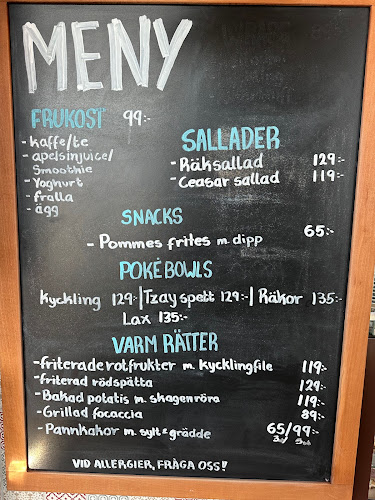 MENY
FRUKOST 99:-
- kaffe/te
- apelsinjuice/
Smoothie
- Yoghurt
- fralla
- ägg
SALLADER
- Räksallad 129:-
- Ceasar sallad 119:-
SNACKS
- Pommes frites m. dipp 65:-
POKÉ BOWLS
Kyckling 129:- | Tzay spett 129:- | Räkor 135:-
Lax 135:-
VARM RÄTTER
- friterade rotfrukter m. kycklingfile 119:-
- friterad rödspätta 129:-
- Bakad potatis m. skagenröra 119:-
- Grillad focaccia 89:-
- Pannkakor m. sylt & grädde 65/99:-
VID ALLERGIER, FRÅGA OSS!